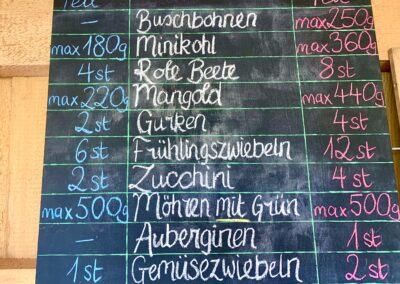 – Buschbohnen max 250g
max 180g Minikohl max 360g
4 st Rote Beete 8 st
max 220g Mangold max 440g
2 st Gurken 4 st
6 st Frühlingszwiebeln 12 st
2 st Zucchini 4 st
max 500g Möhren mit Grün max 500g
– Auberginen 1 st
1 st Gemüsezwiebeln 2 st